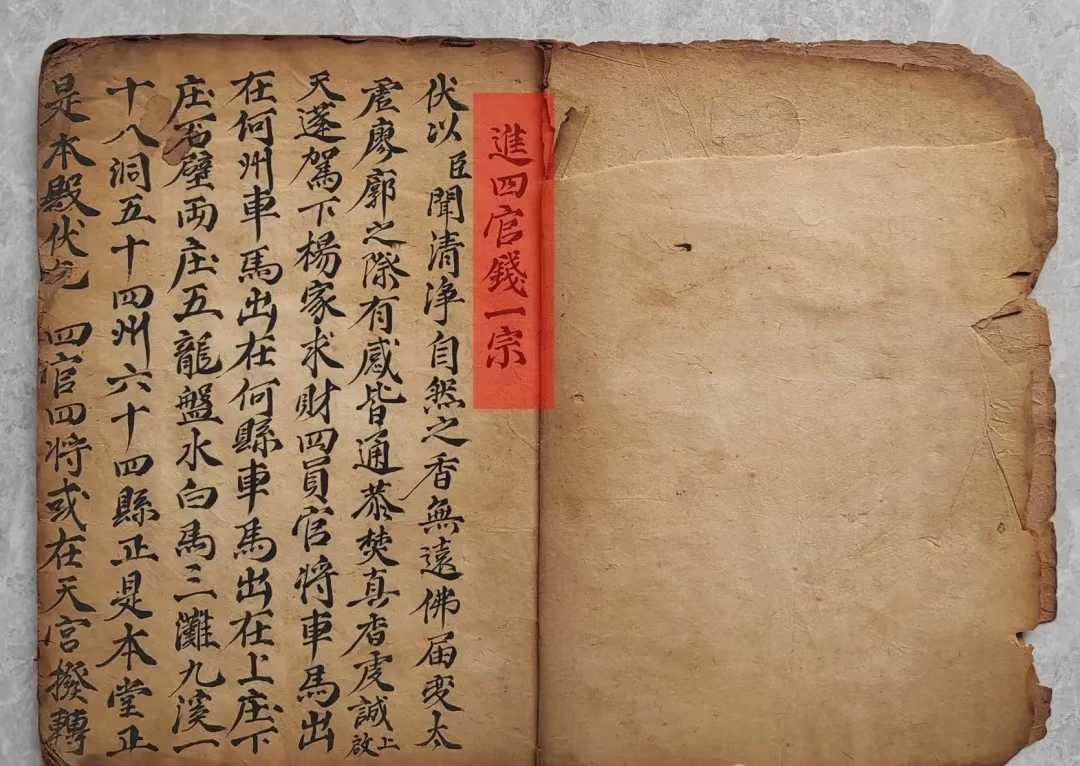 進四官錢一宗
伏以臣聞清净自然之香無遠佛届変太
虗廖廓之際有感皆通恭焚真香虔誠上啟
天蓬駕下楊家求財四員官将車馬出
在何州車馬出在何縣車馬出在上庄下
庄石壁両庄五龍盤水白馬三灘九溪一
十八洞五十四州六十四縣正是本堂正
是本殿伏乞 四官四将或在天宫撥轉